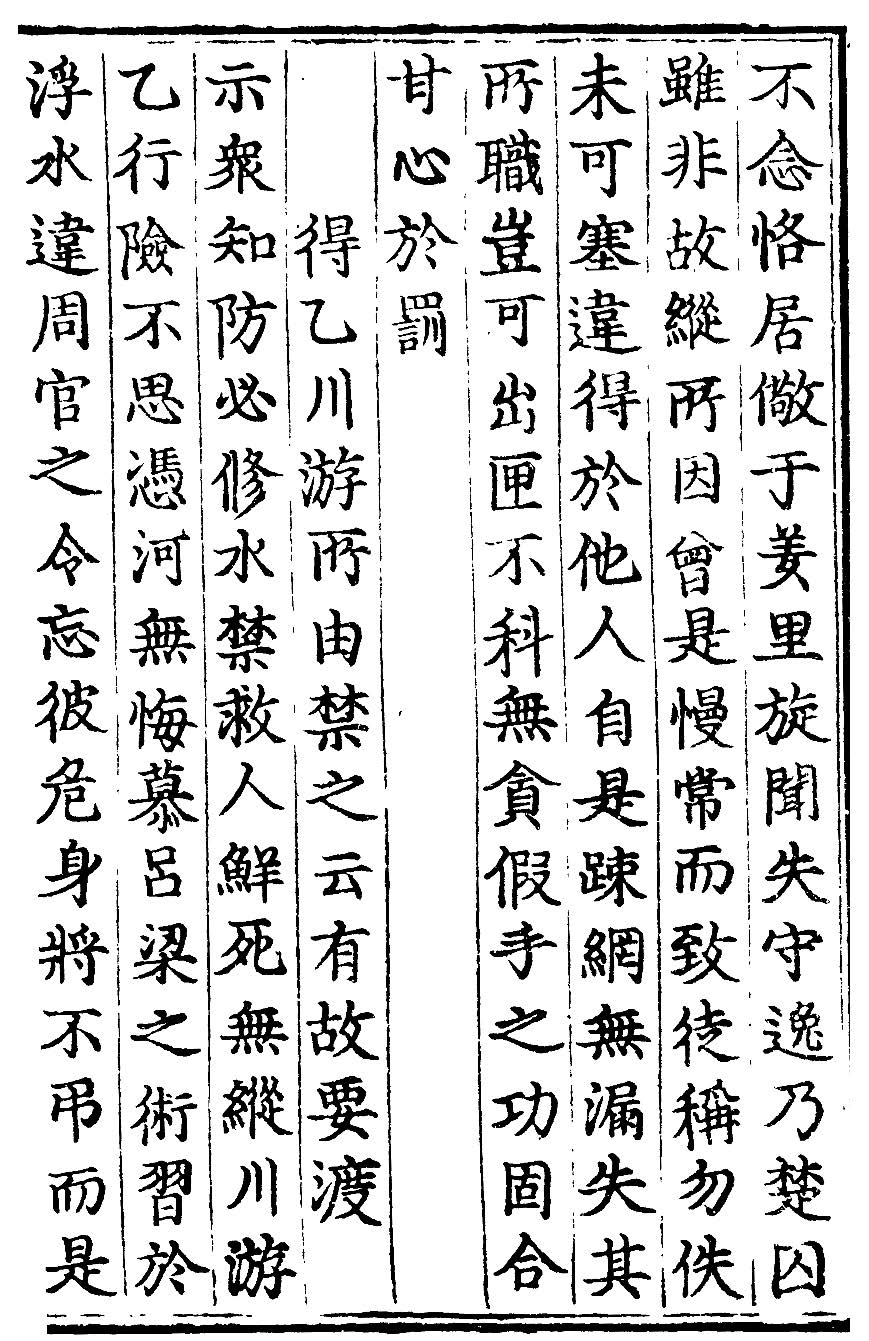 不念恪居儆于姜里旋聞失守逸乃楚囚
雖非故縱所因曾是慢常而致徒稱勿佚
未可塞違得於他人自是踈網無漏失其
所職豈可出匣不科無貪假手之功固合
甘心於罰
得乙川游所由禁之云有故要渡
示衆知防必修水禁救人鮮死無縱川游
乙行險不思憑河無悔慕呂梁之術習於
浮水違周官之令忘彼危身將不弔而是